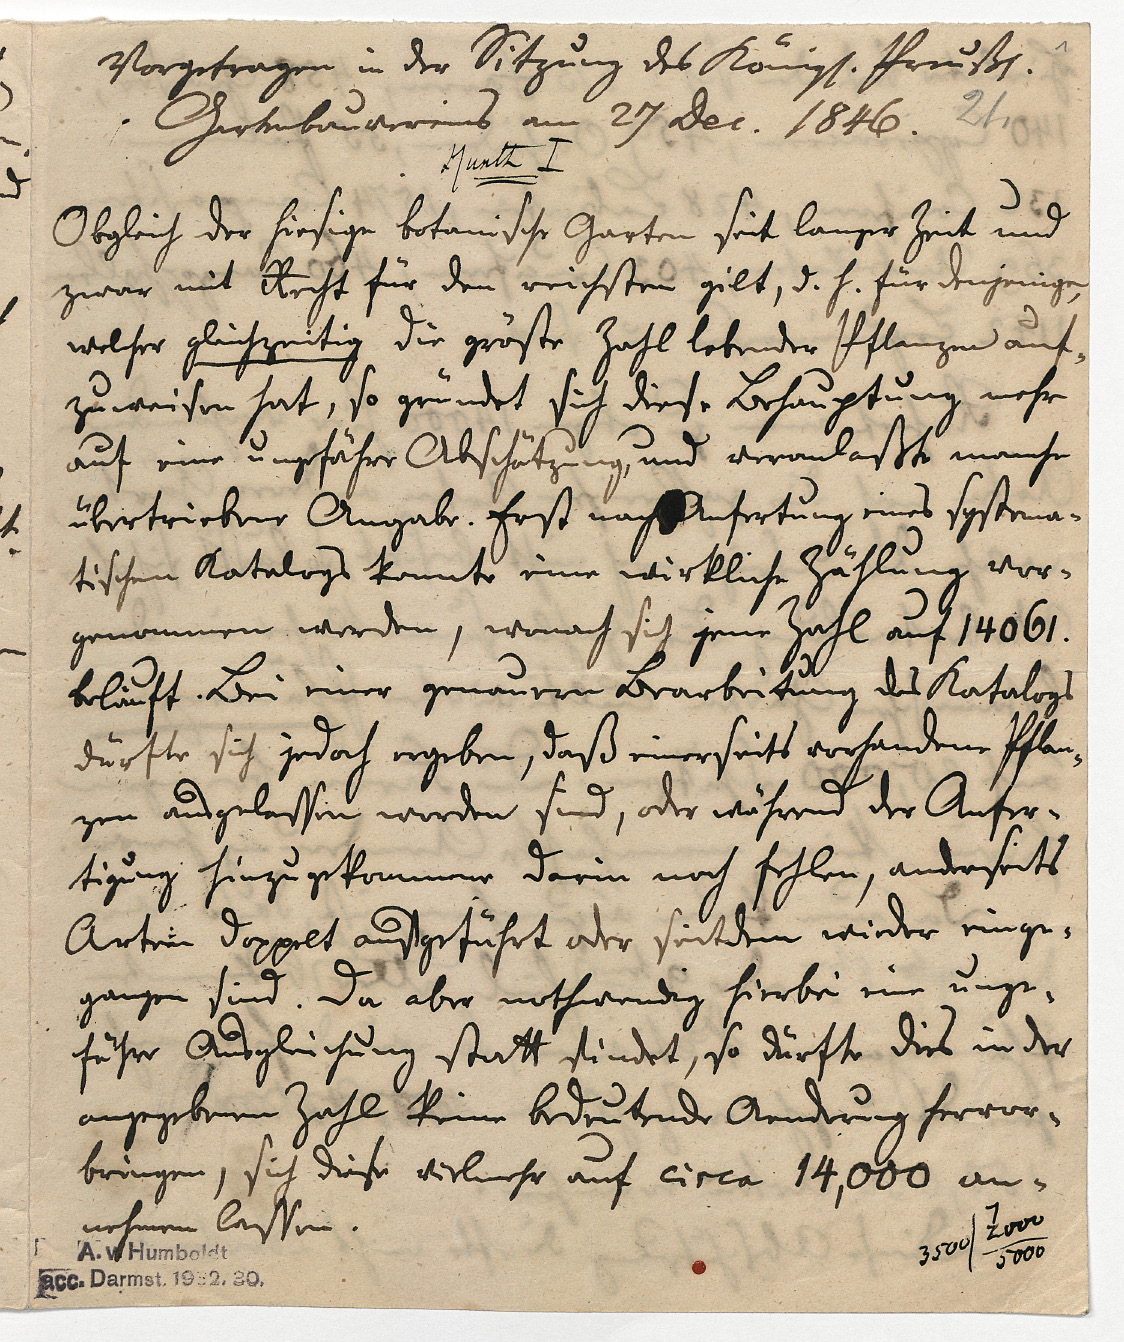 Vorgetragen in der Sitzung des Königl. Preußs.
Gartenbauvereins am 27 Dec. 1846.
21.
Kunth I
Obgleich der hiesige botanische Garten seit langer Zeit und
zwar mit Recht für den reichsten gilt, d. h. für denjenigen,
welcher gleichzeitig die größte Zahl lebender Pflanzen auf-
zuweisen hat, so gründet sich diese Behauptung mehr
auf eine ungefähre Abschätzung, und veranlaßte manche
übertriebene Angabe. Erst nach Anfertung eines systema-
tischen Katalogs konnte eine wirkliche Zählung vor-
genommen werden, wonach sich jene Zahl auf 14061.
beläuft. Bei einer genauern Bearbeitung des Katalogs
dürfte sich jedoch ergeben, daß einerseits vorhandene Pflan-
zen ausgelassen worden sind, oder während der Anfer-
tigung hinzugekommene darin noch fehlen, anderseits
Arten doppelt aufgeführt oder seitdem wieder einge-
gangen sind. Da aber nothwendig hierbei eine unge-
fähre Ausgleichung statt findet, so dürfte dies in der
angegebenen Zahl keine bedeutende Aenderung hervor-
bringen, sich diese vielmehr auf circa 14,000 an-
nehmen lassen.
3500 | 7
2000
5000
A. v Humboldt
acc. Darmst. 1932. 30.